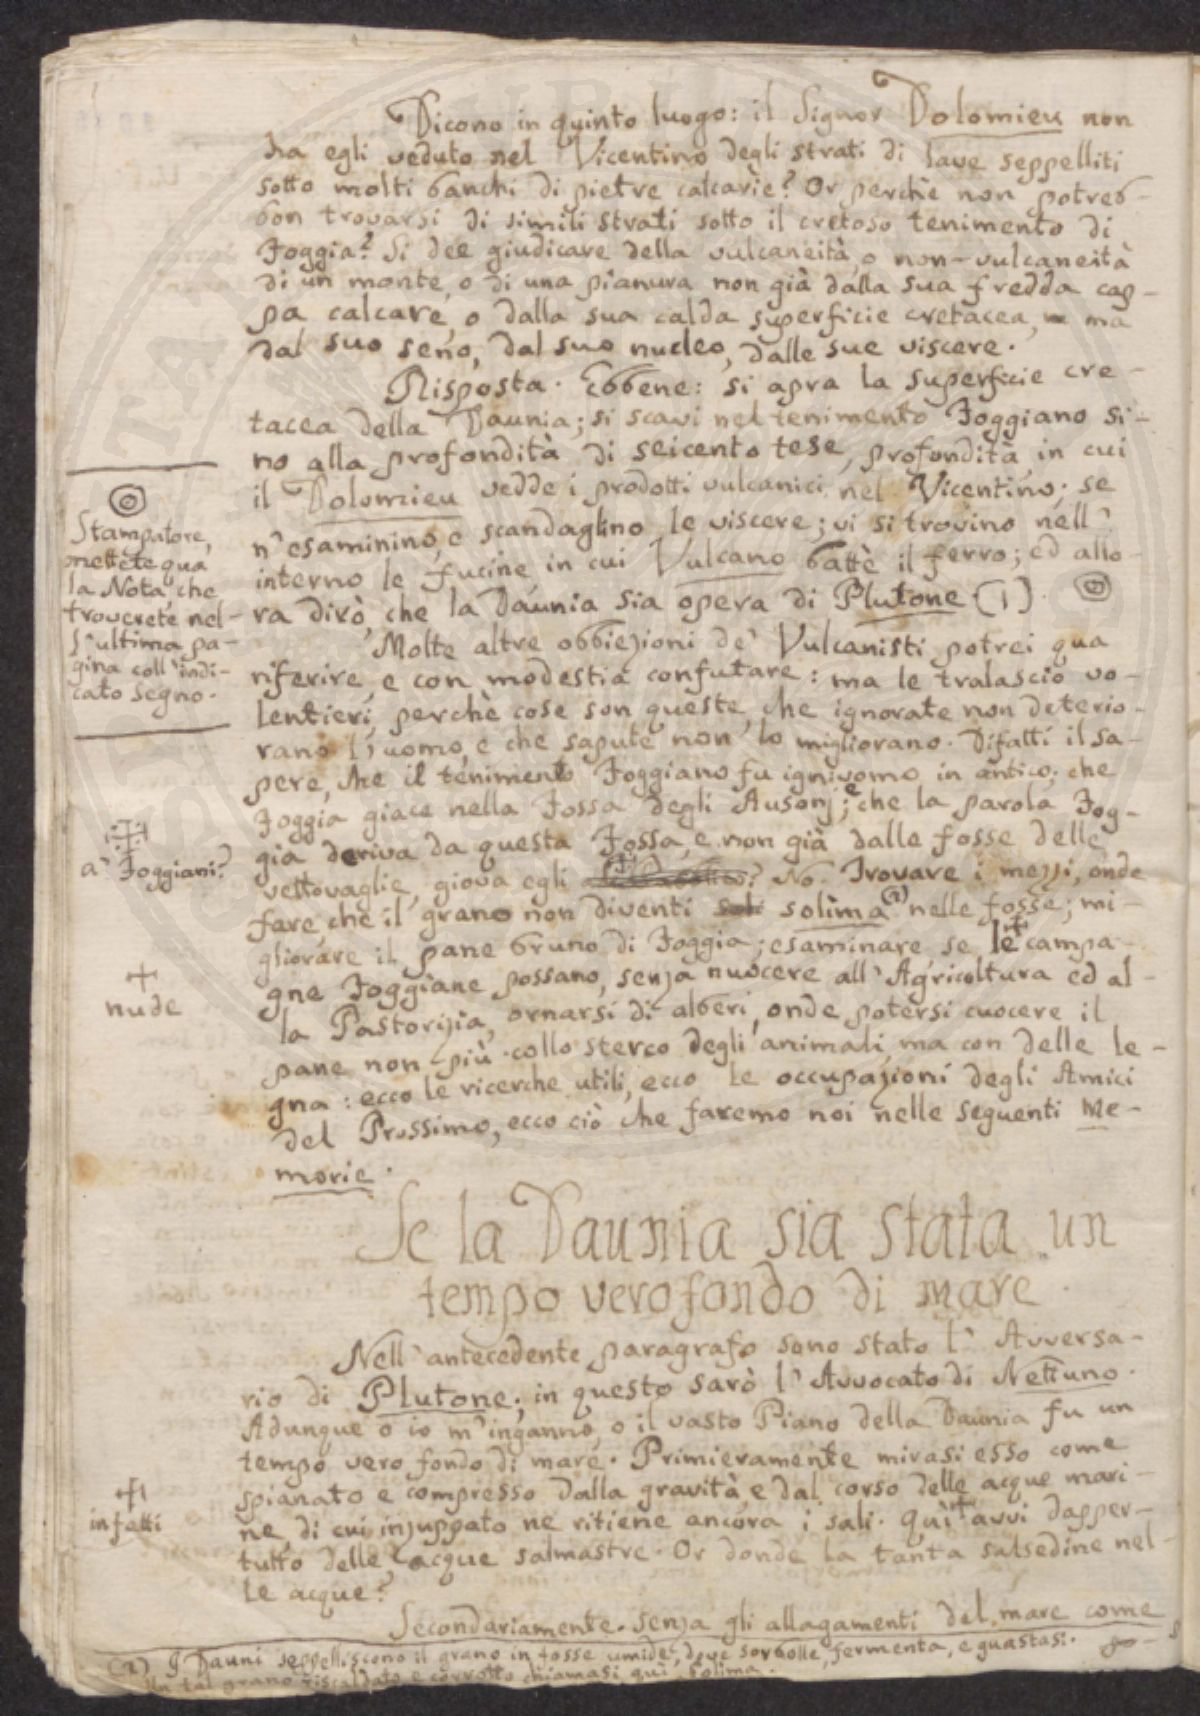 Dicono in quinto luogo: il Signor Dolomieu non
ha egli veduto nel Vicentino degli strati di lave seppelliti
sotto molti banchi di pietre calcarie? Or perchè non potreb-
bon trovarsi di simili strati sotto il cretoso tenimento di
Foggia? Si dee giudicare della vulcaneità, o non-vulcaneità
di un monte, o di una pianura non già dalla sua fredda cap-
pa calcare, o dalla sua calda superficie cretacea, ma
dal suo seno, dal suo nucleo, dalle sue viscere.
Risposta. Ebbene: si apra la superficie cre-
tacea della Daunia; si scavi nel tenimento Foggiano si-
no alla profondità di seicento tese, profondità in cui
il Dolomieu vedde i prodotti vulcanici nel Vicentino; se
n'esaminino, e scandaglino le viscere; vi si trovino nell'
interno le fucine, in cui Vulcano battè il ferro; ed allo-
ra dirò, che la Daunia sia opera di Plutone (1).
Stampatore,
mettete qua
la Nota, che
troverete nel-
l'ultima pa-
gina coll'indi-
cato segno.
Molte altre obbiezioni de' Vulcanisti potrei qua
riferire, e con modestia confutare: ma le tralascio vo-
lentieri, perchè cose son queste, che ignorate non deterio-
rano l'uomo, e che sapute non lo migliorano. Difatti il sa-
pere, che il tenimento Foggiano fu ignivomo in antico; che
Foggia giace nella Fossa degli Ausonj; e che la parola Fog-
gia deriva da questa Fossa, e non già dalle fosse delle
vettovaglie, giova egli ? No. Trovare i mezzi, onde
a' Foggiani?
fare, che il grano non diventi solima (2) nelle fosse; mi-
gliorare il pane bruno di Foggia; esaminare, se le + campa-
nude
gne Foggiane possano, senza nuocere all'Agricoltura ed al-
la Pastorizia, ornarsi di alberi, onde potersi cuocere il
pane non più collo sterco degli animali, ma con delle le-
gna: ecco le ricerche utili, ecco le occupazioni degli Amici
del Prossimo, ecco ciò che faremo noi nelle seguenti Me-
morie.
Se la Daunia sia stata un
tempo vero fondo di mare.
Nell'antecedente paragrafo sono stato l'Avversa-
rio di Plutone; in questo sarò l'Avvocato di Nettuno.
Adunque o io m'inganno, o il vasto Piano della Daunia fu un
tempo vero fondo di mare. Primieramente mirasi esso come
spianato e compresso dalla gravità, e dal corso delle acque mari-
ne, di cui inzuppato ne ritiene ancora i sali. Quì + avvi dapper-
infatti
tutto delle acque salmastre. Or donde la tanta salsedine nel-
le acque?
Secondariamente. Senza gli allagamenti del mare come
po-
(2) I Dauni seppelliscono il grano in fosse umide, dove sorbolle, fermenta, e guastasi.
Un tal grano riscaldato e corrotto chiamasi quì solima.